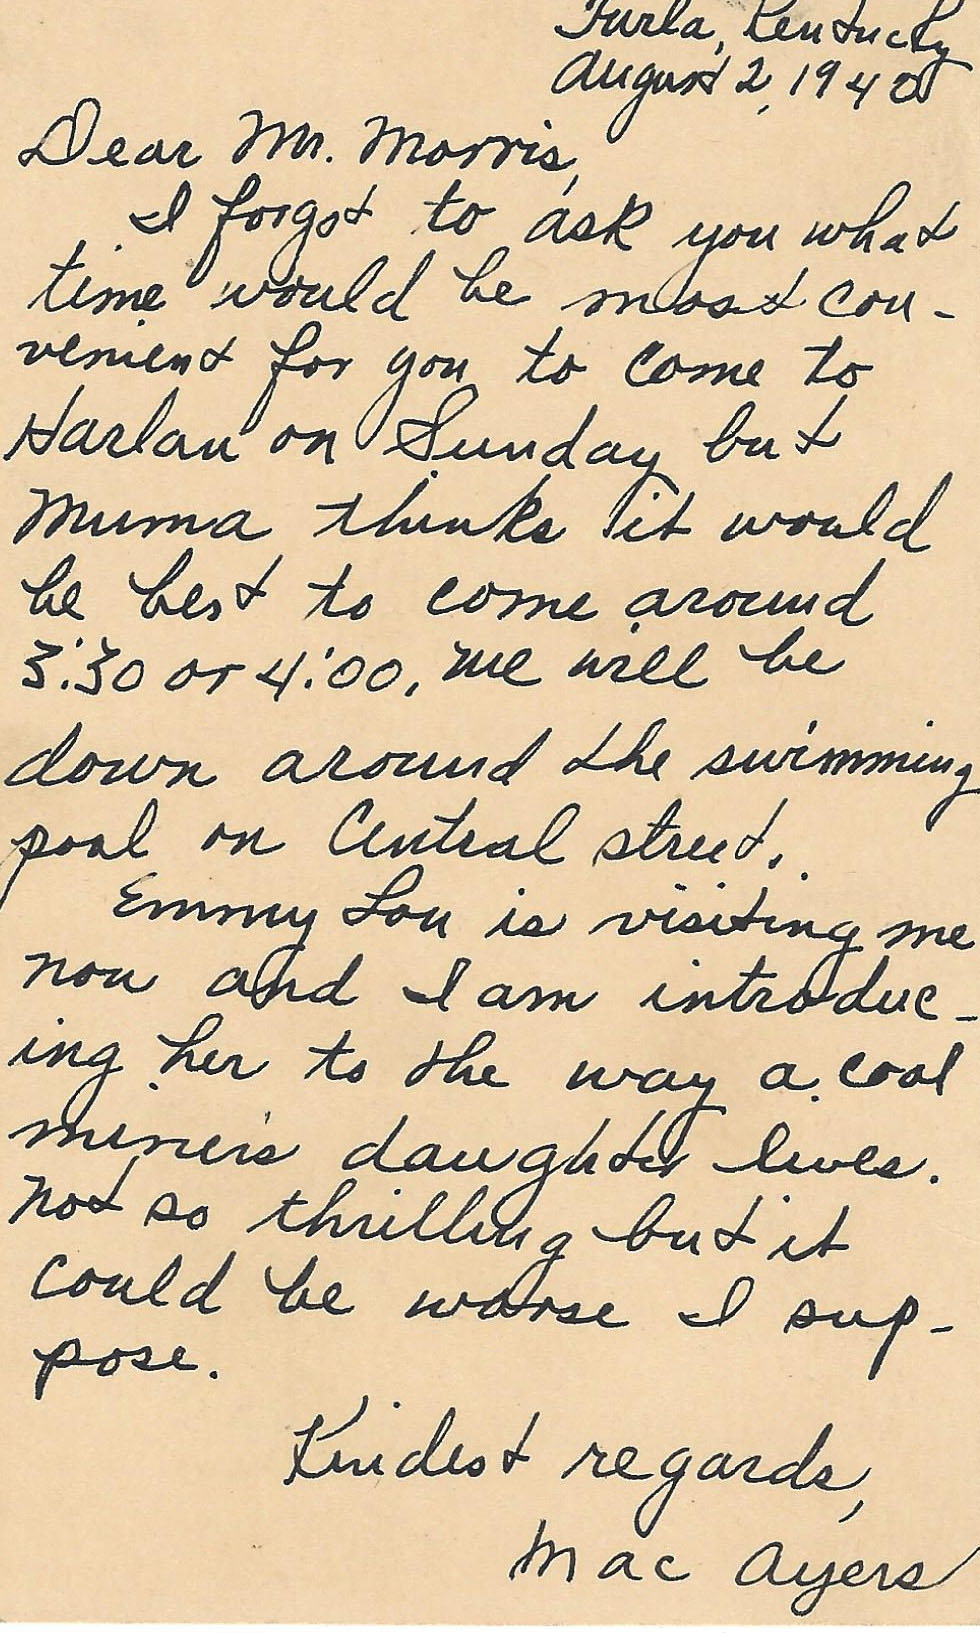 Turla, Kentucky
August 2, 1940
Dear Mr. Morris,
I forgot to ask you what
time would be most con-
venient for you to come to
Harlan on Sunday but
Muma thinks it would
be best to come around
3:30 or 4:00. We will be
down around the swimming
pool on Central street.
Emmy Lou is visiting me
now and I am introduc-
ing her to the way a coal
miner's daughter lives.
Not so thrilling but it
could be worse I sup-
pose.
Kindest regards,
Mac Ayers